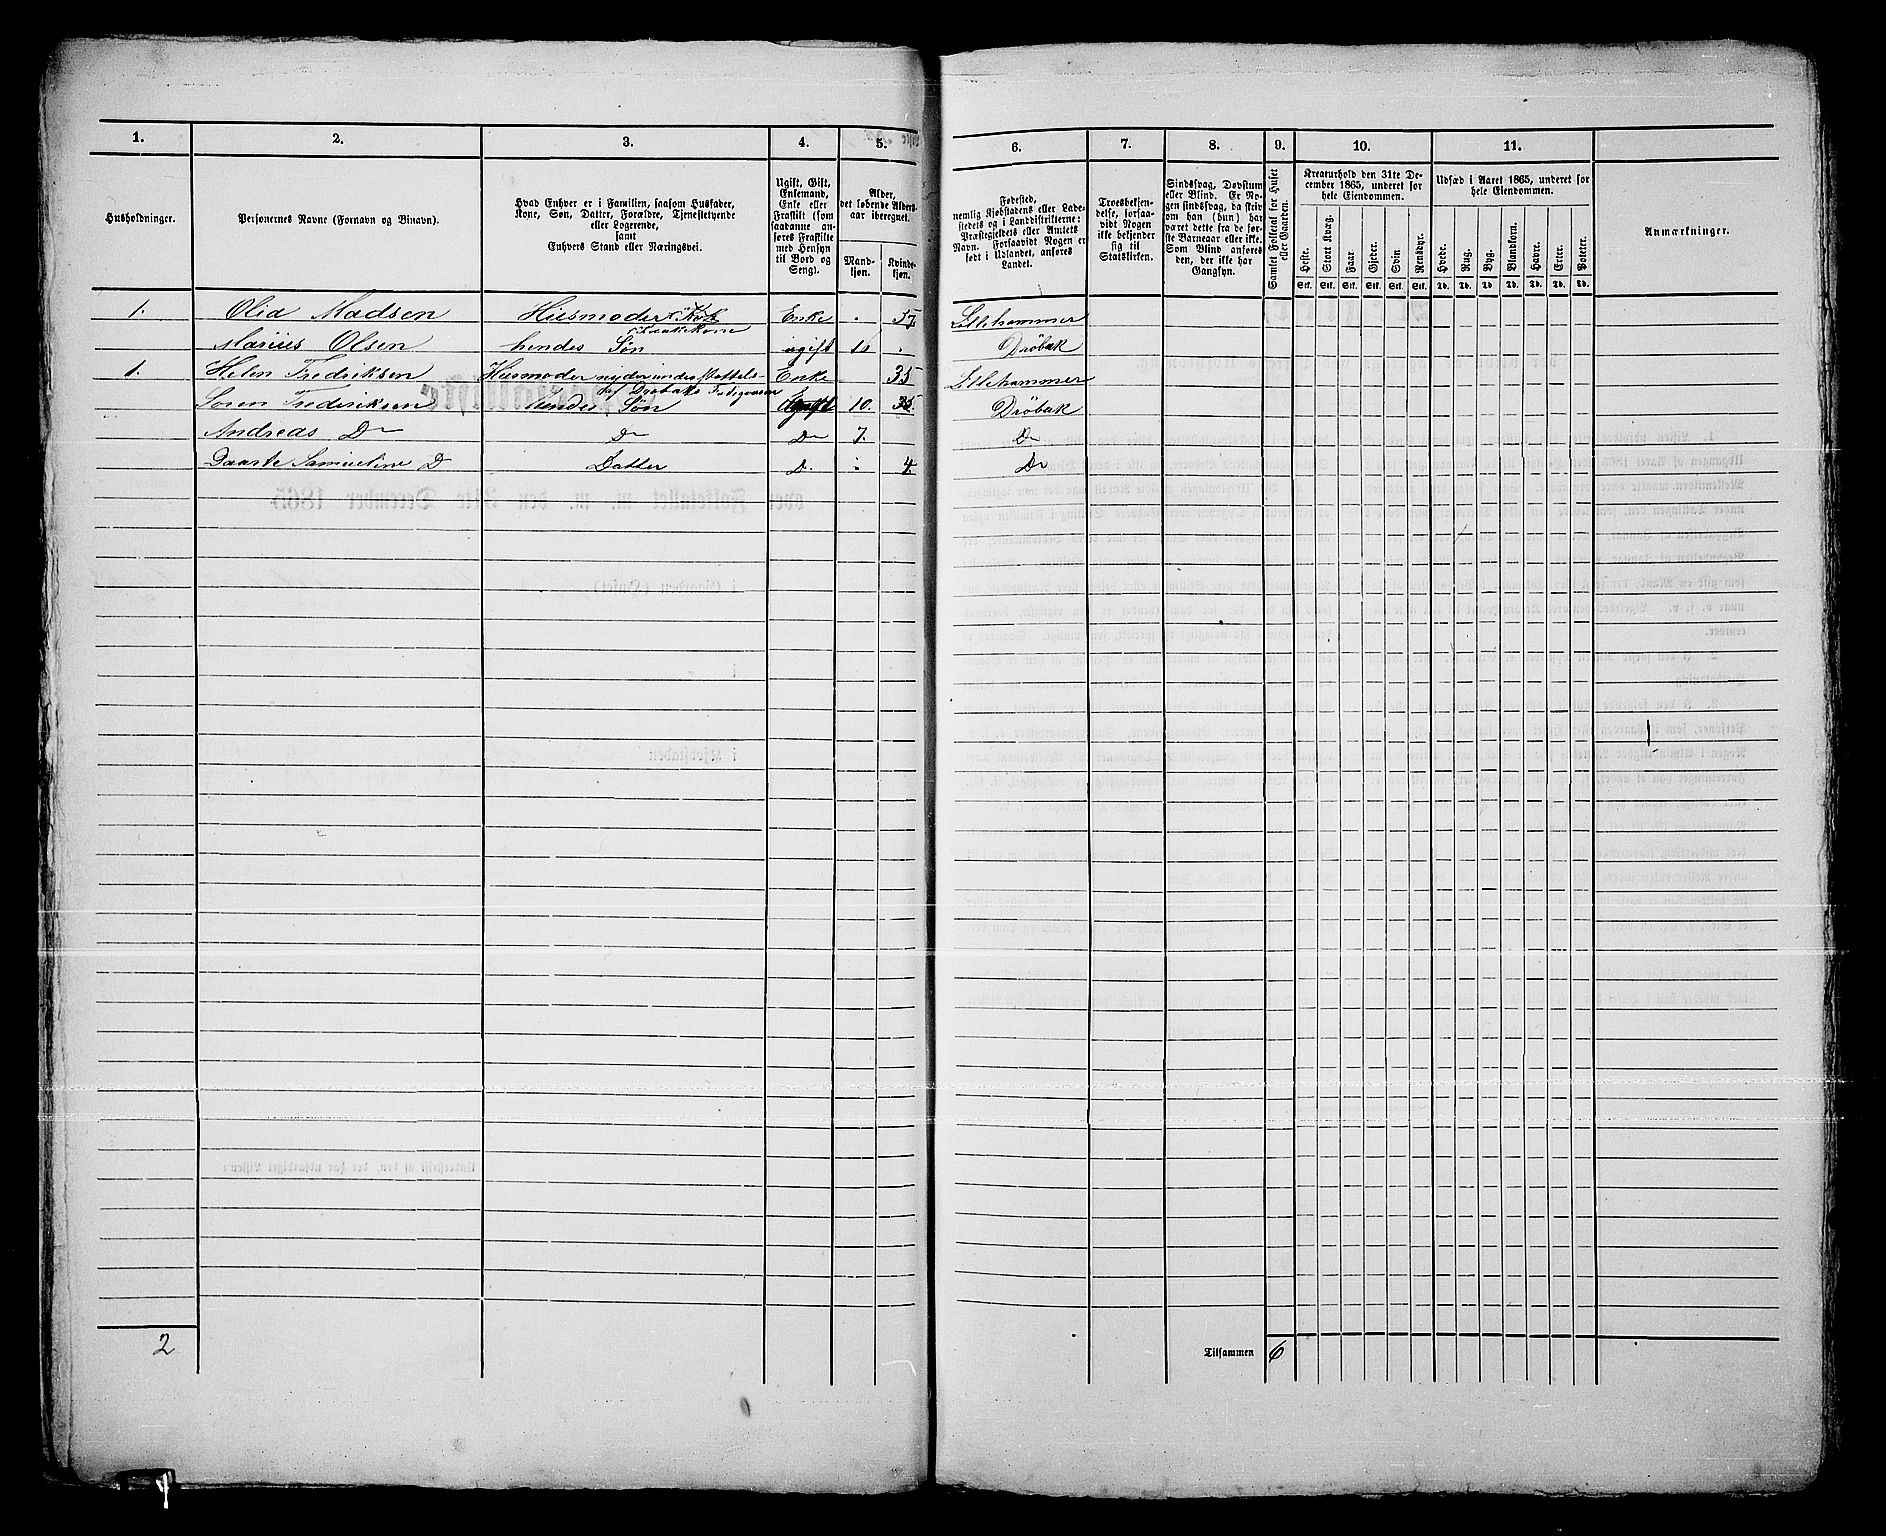 1.
2.
3.
4.
5.
6.
7.
8.
9.
10.
11.
Husholdninger.
Personernes Navne (Fornavn og Binavn).
Hvad Enhver er i Familien, saasom Husfader,
Kone, Søn, Datter, Forældre, Tjenestetyende
eller Logerende,
samt
Enhvers Stand eller Næringsvei.
Ugift, Gift,
Enkemand,
Enke eller
Fraskilt (som
saadanne an-
føres Fraskilte
med Hensyn
til Bord og
Seng).
Alder,
det løbende Alders-
aar iberegnet.
Mand-
kjøn.
Kvinde-
kjøn.
Fødested,
nemlig Kjøbstadens eller Lade-
stedets og i Landdistrikterne:
Præstegjeldets eller Amtets
Navn. Forsaavidt Nogen er
født i Udlandet, anføres
Landet.
Troesbekjen-
delse, forsaa-
vidt Nogen
ikke bekjender
sig til
Statskirken.
Sindssvag, Døvstum
eller Blind. Er No-
gen sindssvag, da skriv
om han (hun) har
været dette fra de før-
ste Barneaar eller ikke.
Som Blind anføres
den, der ikke har
Gangsyn.
Samlet Folketal for Huset
eller Gaarden.
Kreaturhold den 31te De-
cember 1865, underet for
hele Eiendommen.
Heste.
Stort Kvæg.
Faar
Gjeder.
Svin
Rensdyr.
Stk. Stk. Stk. Stk. Stk. Stk.
Udsæd i Aaret 1865, underet for
hele Eiendommen.
Hvede.
Rug.
Byg.
Blandkorn.
Havre.
Erter.
Poteter.
Td. Td. Td. Td. Td. Td. Td.
Anmærkninger.
1. Olia Madsen Husmoder Enke 57 Lillehammer
Marius Olsen hendes Søn ugift Drøbak
1. Helen Fredriksen Husmoder nyder understøttels- Enke 35 Lillehammer
af Drøbaks
Søren Frederiksen hendes Søn 10. Drøbak
Andreas Do Do Do 7. Do
Samueline D Datter D. 4 Do
2
Tilsammen 6